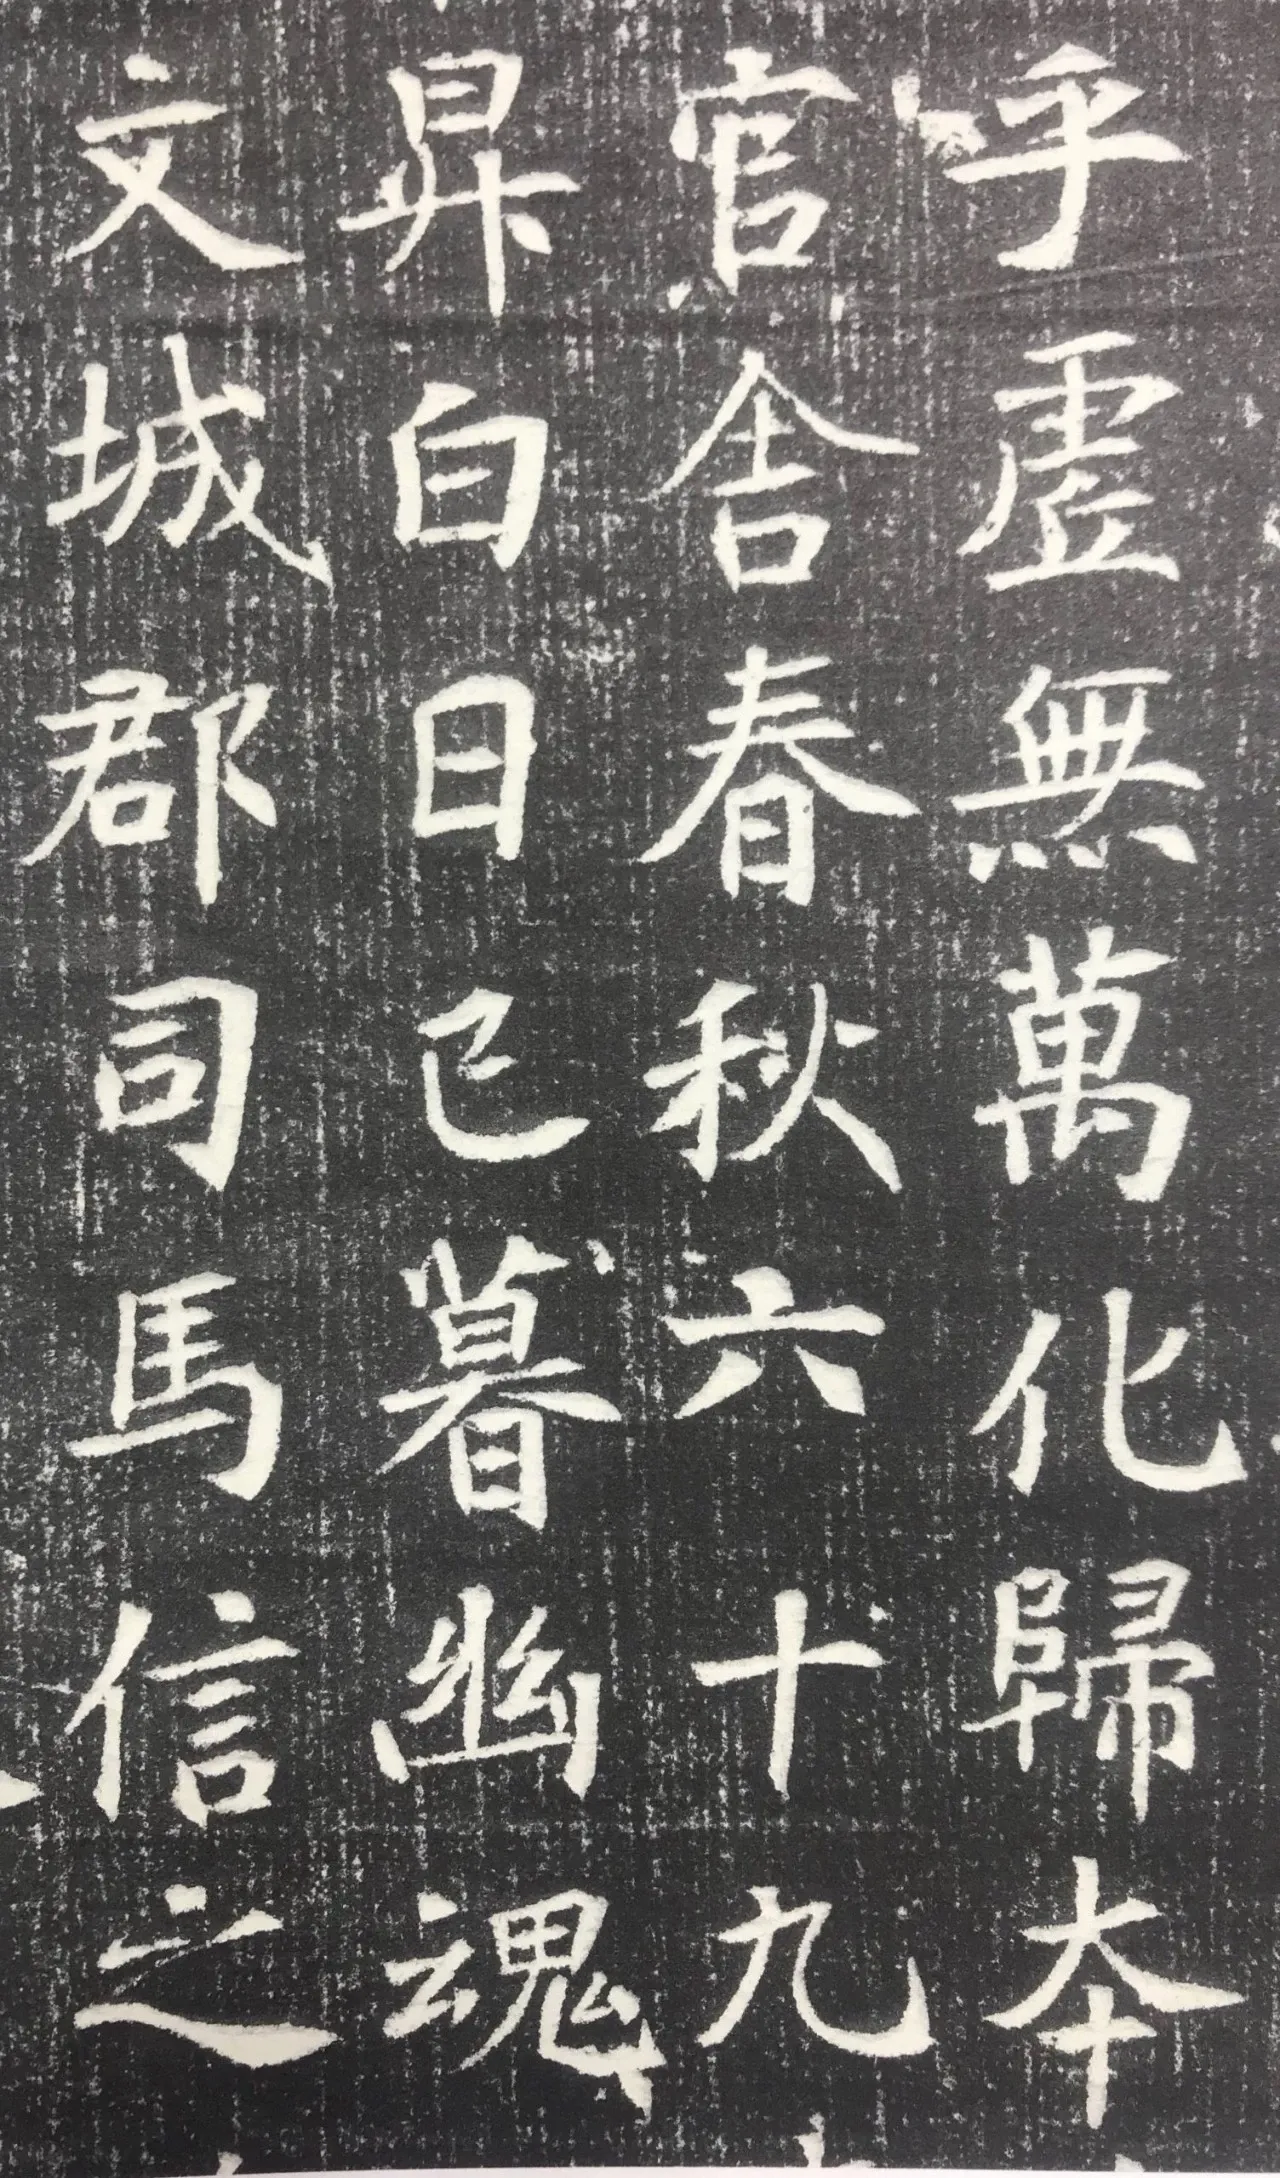 乎虛無萬化歸本
官舍春秋六十九
昇白日已暮幽魂
文城郡司馬信之